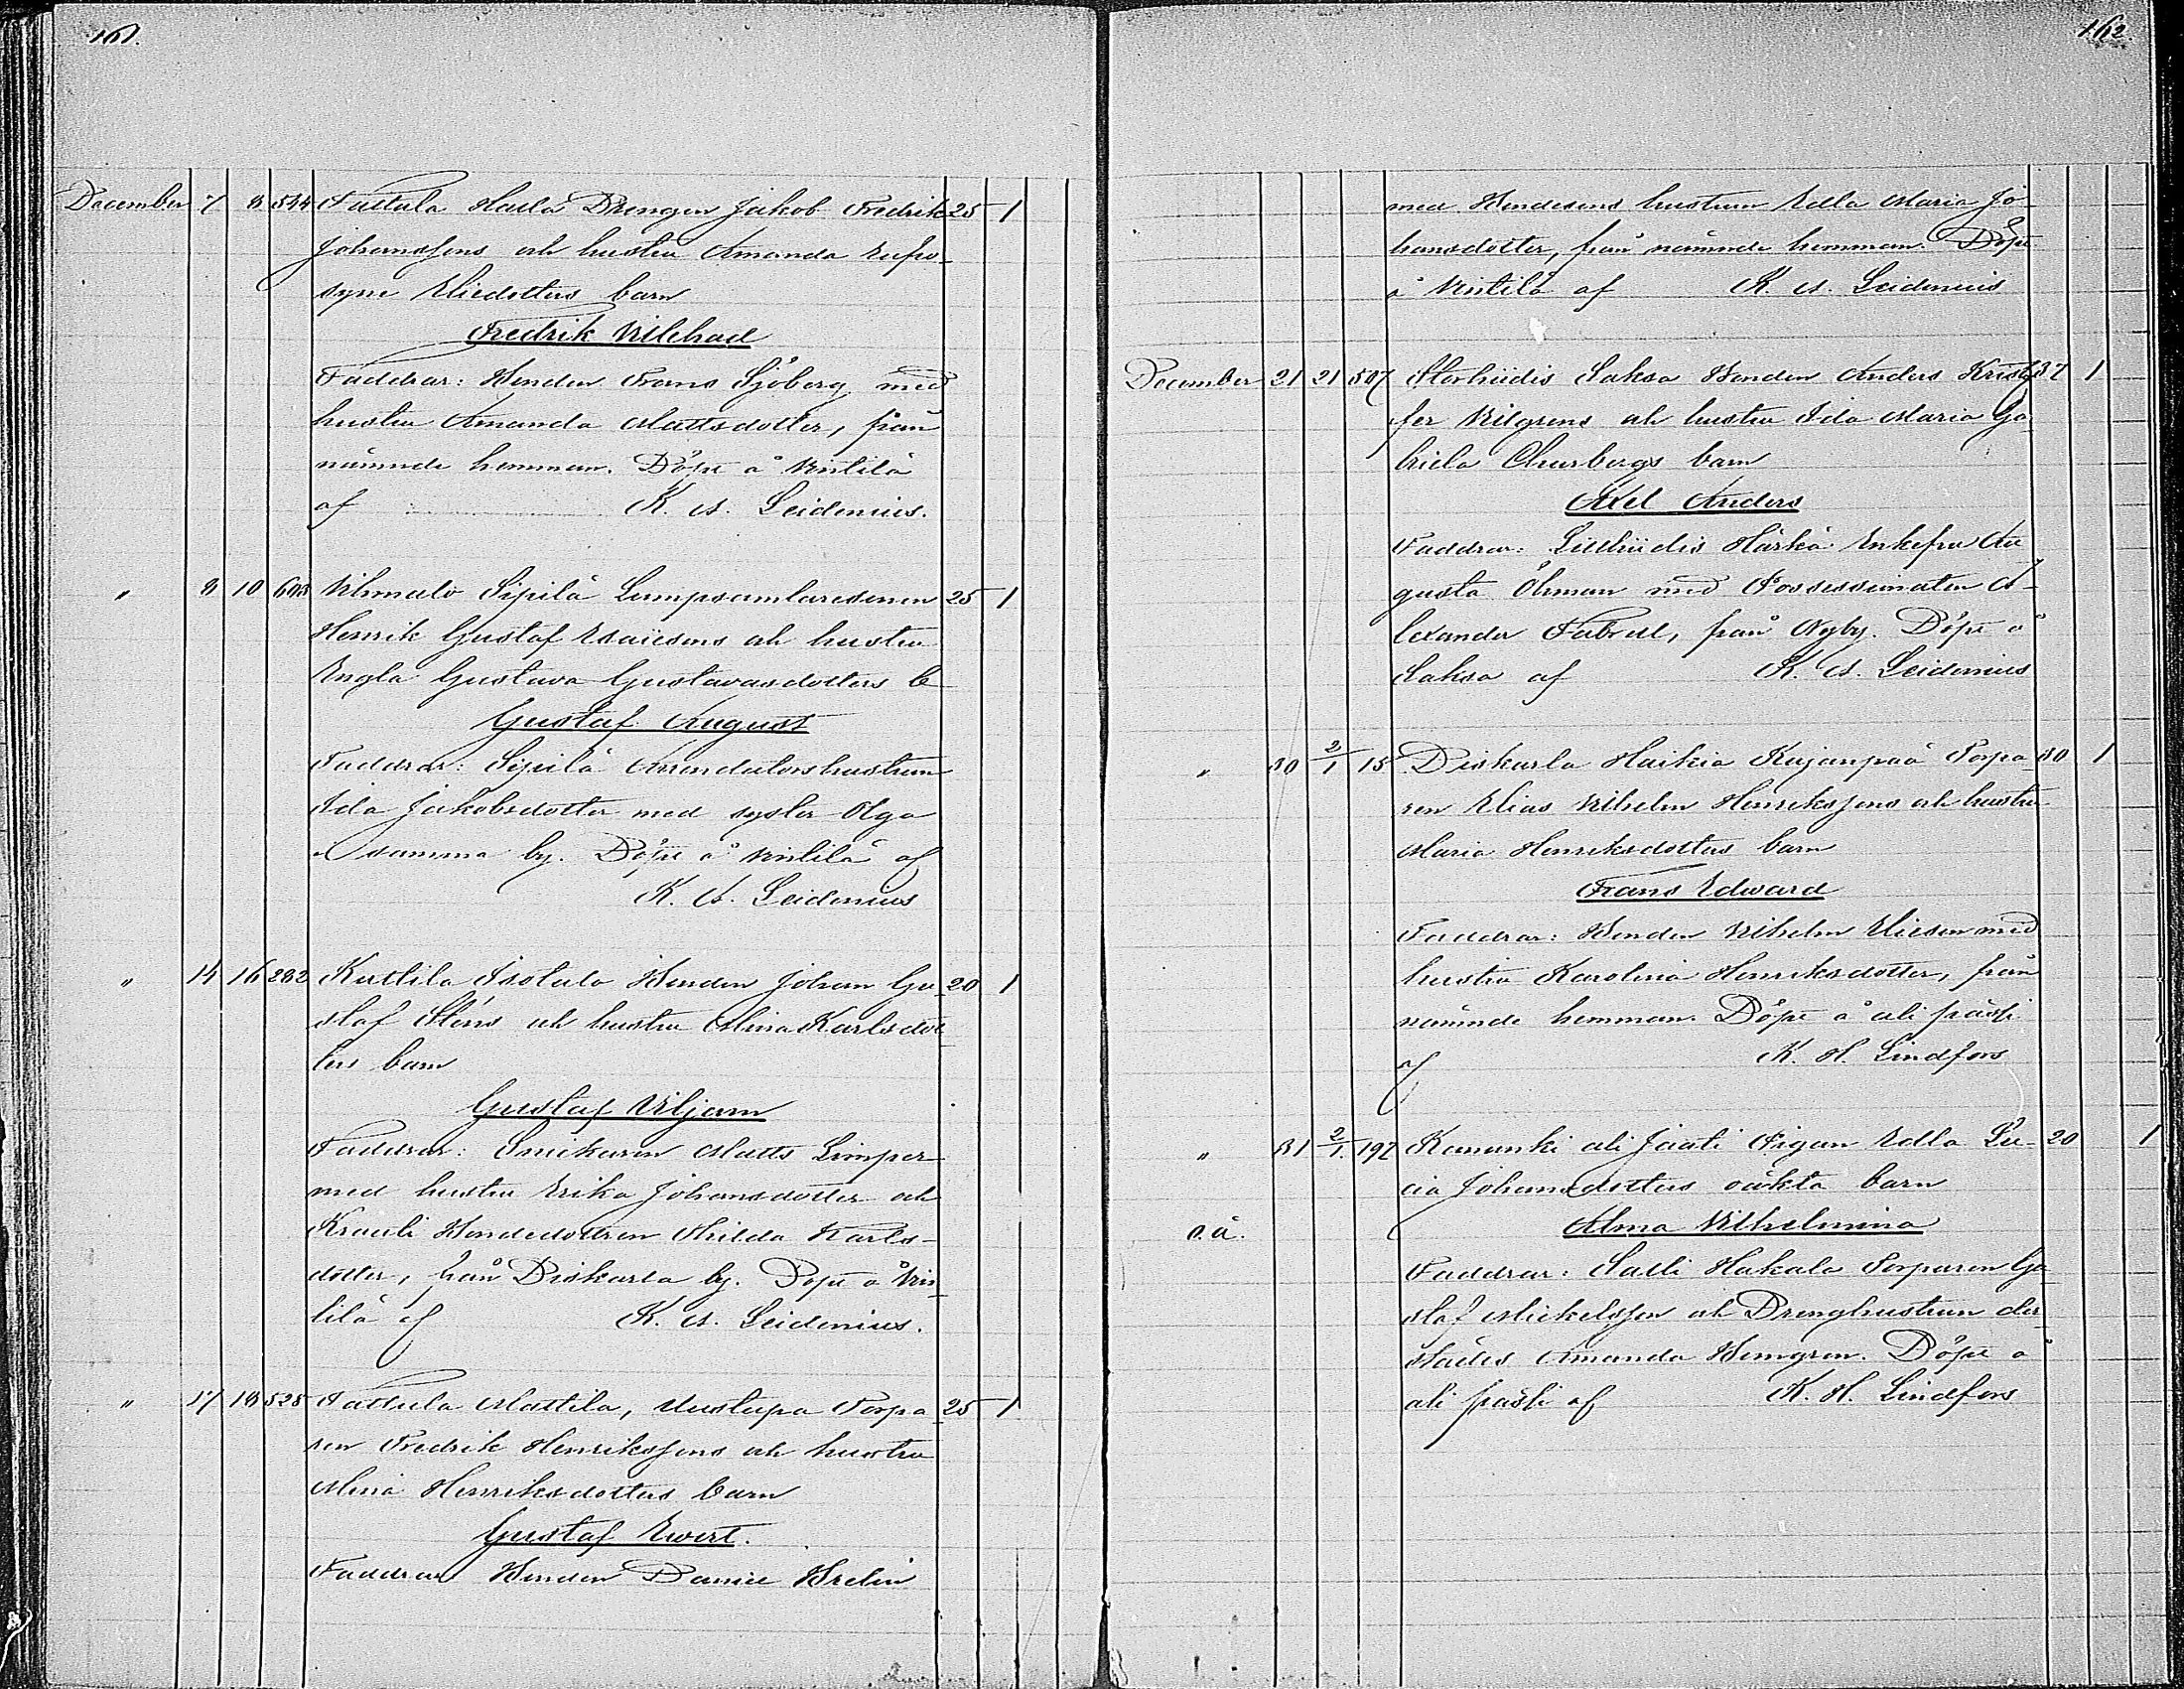 161.
December 7 8 544 Tattula Harla Drengen Jakob Fredrik 25 1
Johanssons och hustru Amanda Eufro-
syne Eliedotters barn
Fredrik Vilehad
Faddrar: Bonden Frans Sjöberg med
hustru Amanda Mattsdotter, från
nämnde hemman. Döpt å Anttila
af K. A. Leidenius.
" 8 10 603 Sipilä Lumpsamlaresonen 25 1
Henrik Gustaf Esaiesons och hustru
Engla Gustava Gustavasdotters b
Gustaf August
Faddrar: Sipilä Arrendatorshustrun
Ida Jakobsdotter med syster Olga
samma by. Döpt å Anttila af
K. A. Leidenius
" 14 16 282 Kuttila Isotalo Bonden Johan Gu- 20 1
staf Sténs och hustru Mina Karlsdot
ters barn
Gustaf Viljam
Faddrar: Snickaren Matts Limper
med hustru Erika Johansdotter och
Krouli Bondedottren Hilda Karls-
dotter, från Diskarla by. Döpt å An
tila af K. A. Leidenius.
" 17 18 525 Tattula Mattila, Torpa 25 1
ren Fredrik Henrikssons och hustru
Mina Henriksdotters barn
Gustaf Evert.
Faddrar Bonden Daniel Brelin
162.
med Bondesons hustrun Edla Maria Jo-
hansdotter, från nämnde hemman. Döpt
å Anttila af K. A. Leidenius
December 21 21 507 Storhiidis Saksa Bonden Anders Kristof 37 1
fer Vilgrens och hustru Ida Maria Ga
briela Churbergs barn
Axel Anders
Faddrar: Lillhiidis Härkä Enkefru Au
gusta Öhman med Possessionaten A-
lexander Fabrell, från Nyby. Döpt å
Saksa af K. A. Leidenius
" 30 2/1 15 Diskarla Haikia Kujanpää Torpa 30 1
ren Elias Vilhelm Henrikssons och hustru
Maria Henriksdotters barn
Frans Edward
Faddrar: Bonden Vilhelm Elieson med
hustru Karolina Henriksdotter, från
nämnde hemman. Döpt å ali pästi
af K. H. Lindfors
" 31 2/1. 197 Kananki ali Jaati Pigan Edla Lu- 20 1
cia Johansdotters oäkta barn
o.ä. Alma Vilhelmina
Faddrar: Salli Hakala Torparen Gu
staf Mickelsson och Drenghustrun der
städes Amanda Bomgren. Döpt å
ali pästi af K. H. Lindfors